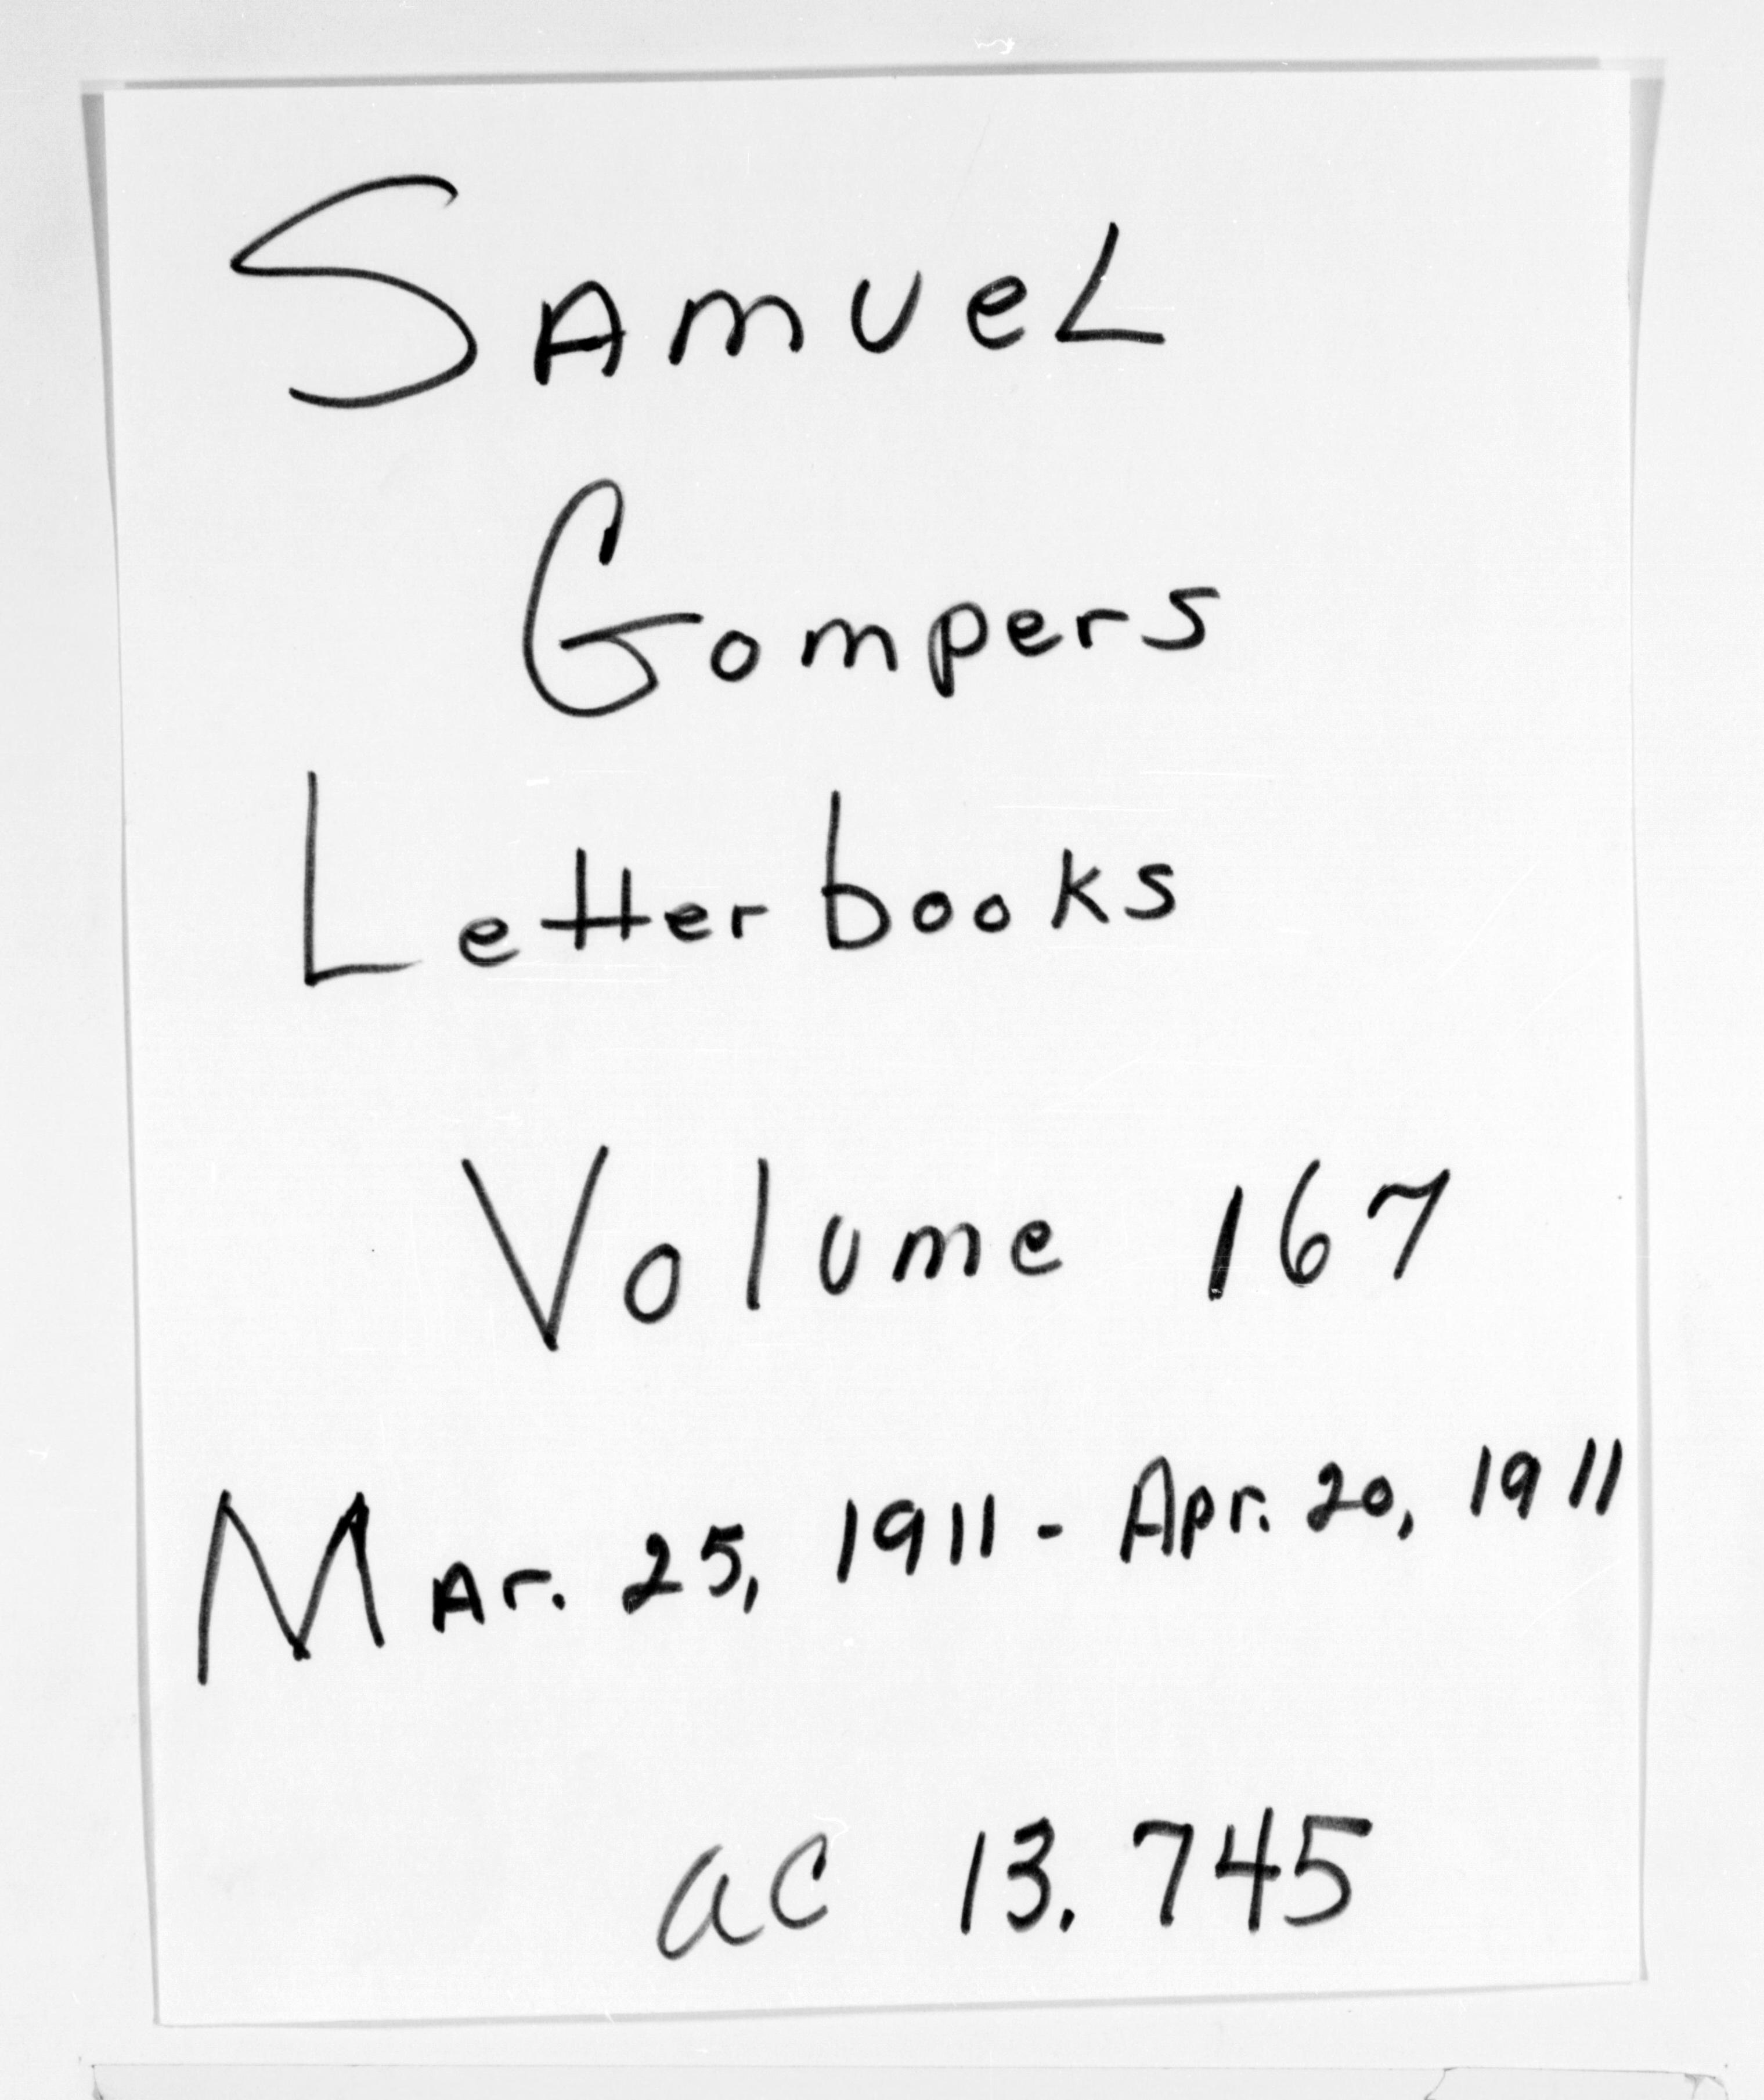 Samuel
Gompers
Letterbooks
Volume 167
Mar. 25, 1911 - Apr. 20, 1911
ac 13.745